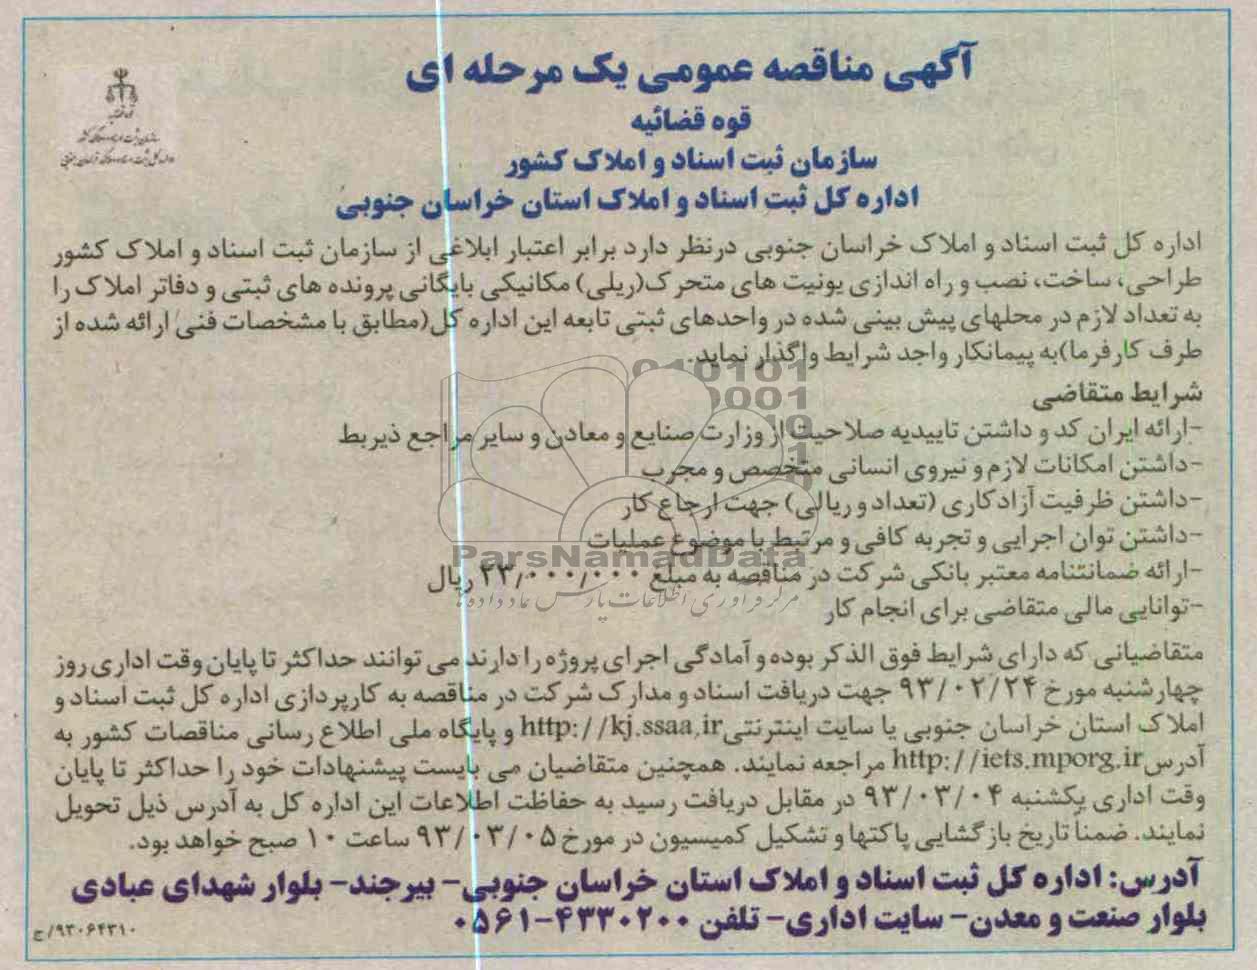 آگهی مناقصه عمومی یک مرحله ای
قوه قضائیه
سازمان ثبت اسناد و املاک کشور
اداره کل ثبت اسناد و املاک استان خراسان جنوبی
قوه قضائیه
سازمان ثبت اسناد و املاک کشور
اداره کل ثبت اسناد و املاک خراسان جنوبی
اداره کل ثبت اسناد و املاک خراسان جنوبی درنظر دارد برابر اعتبار ابلاغی از سازمان ثبت اسناد و املاک کشور
طراحی، ساخت، نصب و راه اندازی یونیت های متحرک(ریلی) مکانیکی بایگانی پرونده های ثبتی و دفاتر املاک را
به تعداد لازم در محلهای پیش بینی شده در واحدهای ثبتی تابعه این اداره کل(مطابق با مشخصات فنی ارائه شده از
طرف کارفرما)به پیمانکار واجد شرایط واگذار نماید.
شرایط متقاضی
-ارائه ایران کد و داشتن تاییدیه صلاحیت از وزارت صنایع و معادن و سایر مراجع ذیربط
-داشتن امکانات لازم و نیروی انسانی متخصص و مجرب
-داشتن ظرفیت آزاد کاری (تعداد و ریالی) جهت ارجاع کار
-داشتن توان اجرایی و تجربه کافی و مرتبط با موضوع عملیات
ParsNamadData
-ارائه ضمانتنامه معتبر بانکی شرکت در مناقصه به مبلغ ۲۳/۰۰۰/۰۰۰ ریال
مرکز فرآوری اطلاعات پارس نماد داده ها
-توانایی مالی متقاضی برای انجام کار
متقاضیانی که دارای شرایط فوق الذکر بوده و آمادگی اجرای پروژه را دارند می توانند حداکثر تا پایان وقت اداری روز
چهارشنبه مورخ ۹۳/۰۲/۲۴ جهت دریافت اسناد و مدارک شرکت در مناقصه به کارپردازی اداره کل ثبت اسناد و
املاک استان خراسان جنوبی یا سایت اینترنتی http://kj.ssaa.ir و پایگاه ملی اطلاع رسانی مناقصات کشور به
آدرس http://iets.mporg.ir مراجعه نمایند. همچنین متقاضیان می بایست پیشنهادات خود را حداکثر تا پایان
وقت اداری یکشنبه ۹۳/۰۳/۰۴ در مقابل دریافت رسید به حفاظت اطلاعات این اداره کل به آدرس ذیل تحویل
نمایند. ضمناً تاریخ بازگشایی پاکتها و تشکیل کمیسیون در مورخ ۹۳/۰۳/۰۵ ساعت ۱۰ صبح خواهد بود.
آدرس: اداره کل ثبت اسناد و املاک استان خراسان جنوبی- بیرجند- بلوار شهدای عبادی
بلوار صنعت و معدن- سایت اداری- تلفن ۴۳۳۰۲۰۰-۰۵۶۱
۹۳۰۶۴۳۱۰/ج